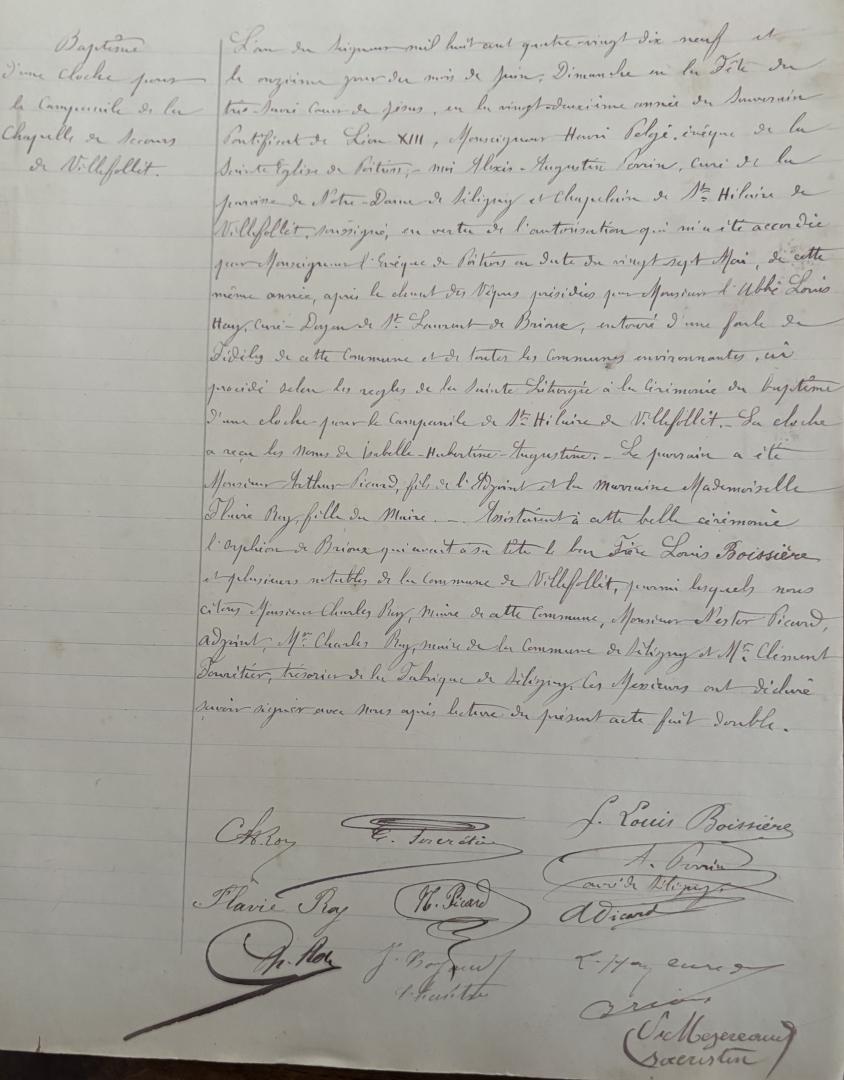 Baptême
d'une cloche pour
le Campanile de la
Chapelle de Secours
de Villefollet.
L'an du Seigneur mil huit cent quatre-vingt dix neuf et
le onzième jour du mois de Juin, Dimanche en la Fête du
très Sacré Cœur de Jésus, en la vingt-deuxième année du Souverain
Pontificat de Léon XIII, Monseigneur Henri Pelgé, évêque de la
Sainte Eglise de Poitiers, - moi Alexis-Augustin Perrin, curé de la
paroisse de Notre-Dame de Séligny et Chapelain de St Hilaire de
Villefollet, soussigné, en vertu de l'autorisation qui m'a été accordée
par Monseigneur l'Evêque de Poitiers en date du vingt sept Mai, de cette
même année, après le chant des Vêpres présidées par Monsieur l'Abbé Louis
Hay, curé-Doyen de St Laurent de Brioux, entouré d'une foule de
Fidèles de cette Commune et de toutes les Communes environnantes, ai
procédé selon les regles de la Sainte Liturgie à la Cérémonie du baptême
d'une cloche pour le Campanile de St Hilaire de Villefollet. - La cloche
a reçu les noms de Isabelle-Hubertine-Augustine. - Le parrain a été
Monsieur Arthur Picard, fils de l'Adjoint et la marraine Mademoiselle
Flavie Roy, fille du Maire. - Assistaient à cette belle cérémonie
l'orphéon de Brioux qui avait à sa tête le bon Frère Louis Boissière
et plusieurs notables de la Commune de Villefollet, parmi lesquels nous
citons Monsieur Charles Roy, maire de cette Commune, Monsieur Nestor Picard,
adjoint, Mr Charles Roy, maire de la Commune de Séligny et Mr Clément
trésorier de la Fabrique de Séligny. Ces Messieurs ont déclaré
savoir signer avec nous après lecture du présent acte fait double.
Ch Roy
f. Louis Boissière
A. Perrin
curé de Séligny
Flavie Roy
N. Picard
A Picard
Ch. Roy
L. Hay curé de
Brioux
Mezereau
sacristin